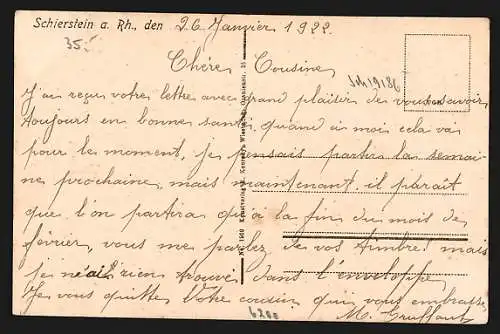 Schierstein a. Rh., den 26 Janvier 1922.
35.-
Chère Cousine,
Sch19186
J'ai reçu votre lettre avec grand plaisir de vous savoir
toujours en bonne santé, quand à moi cela va
pour le moment, je pensais partir la semai-
ne prochaine, mais maintenant il parait
que l'on partira qu'à la fin du mois de
février, vous me parlez de vos timbre! mais
je n'ai rien trouvé dans l'enveloppe
Je vous quitte, Votre cousin qui vous embrasse,
6200
M. Truffaut